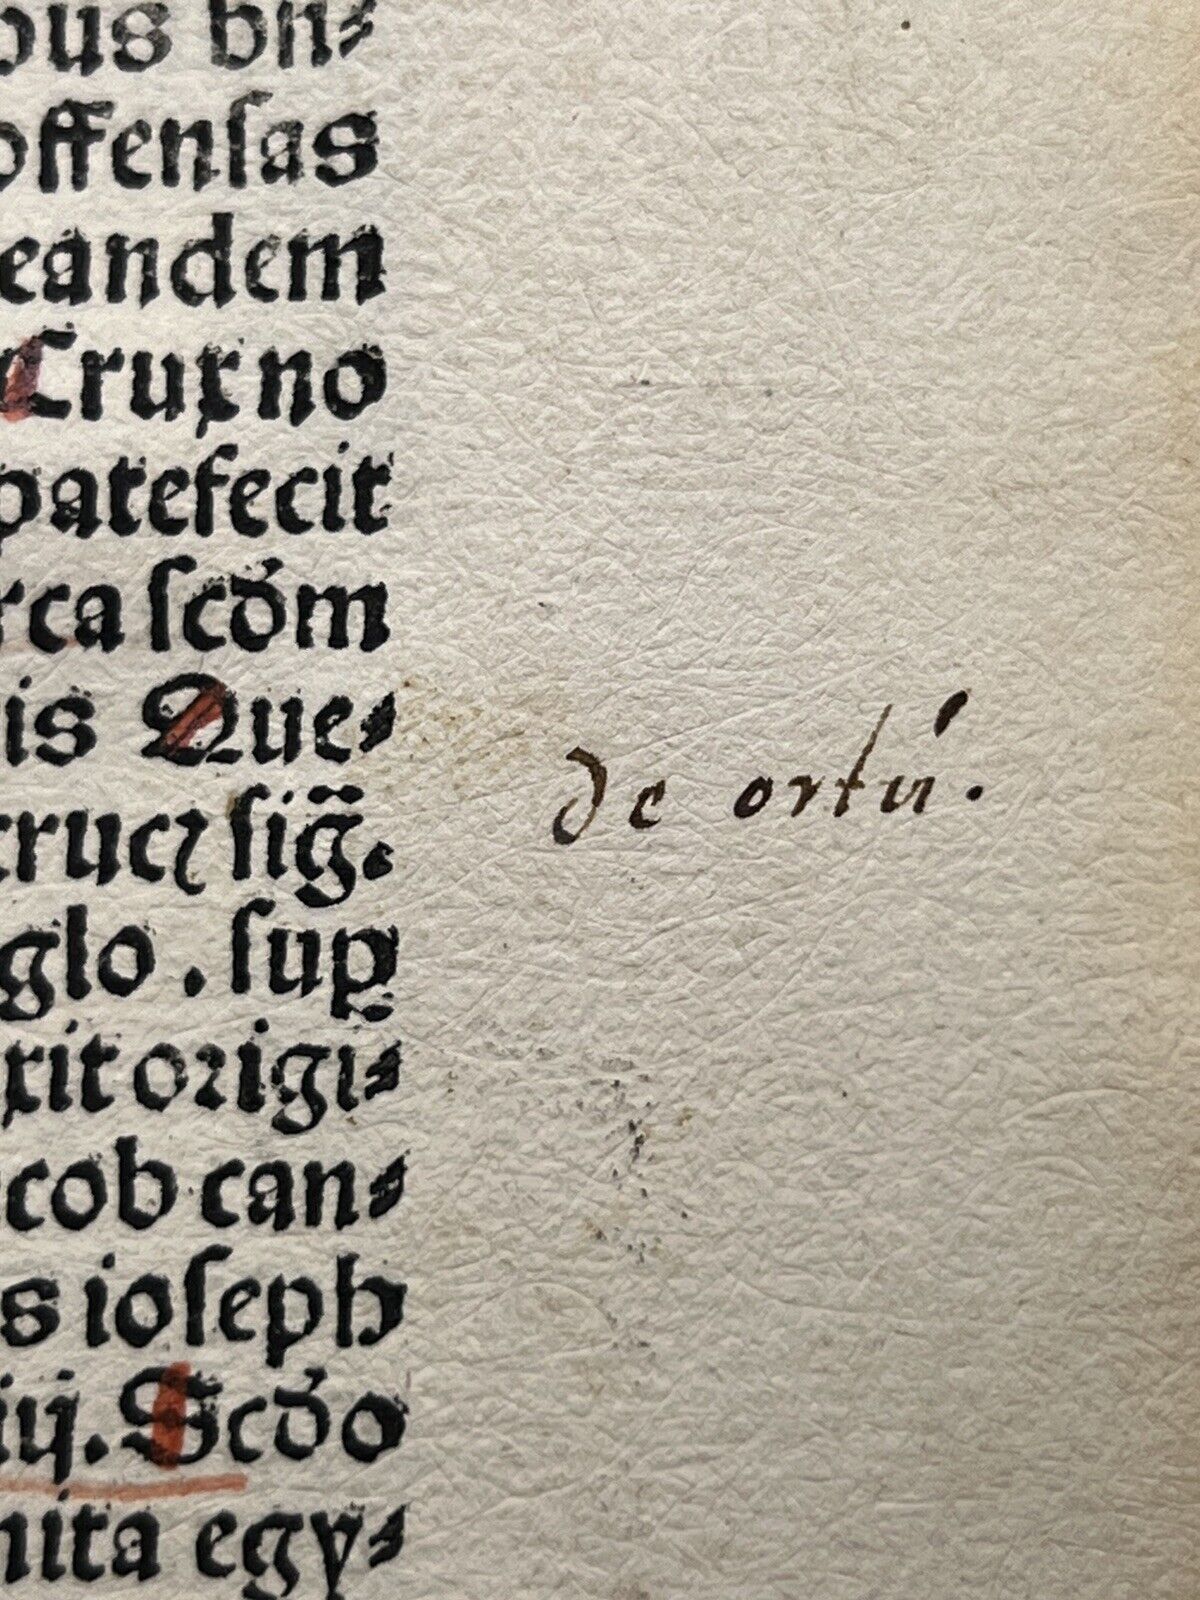 ous bn⸗
offenſas
eandem
Crux no
patefecit
rca ſcd̄m
is Que⸗
crucꝭ ſiḡ.
de ortu.
glo . ſuꝑ
xit origi⸗
acob can⸗
s ioſeph
iij. Scd̄o
nita egy⸗